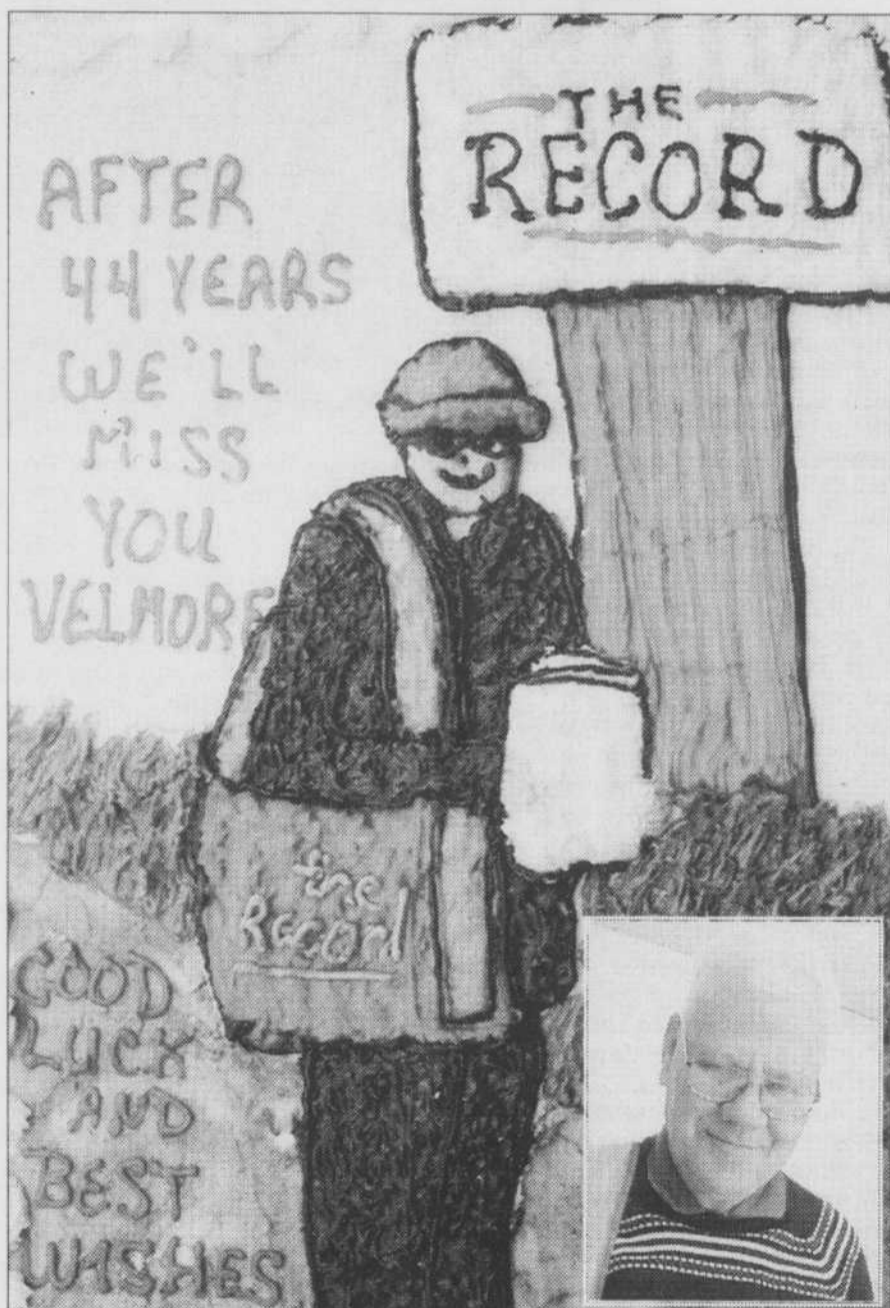 THE
RECORD
AFTER
44 YEARS
WE'LL
MISS
YOU
VELMORE
the
Record
GOOD
LUCK
AND
BEST
WISHES